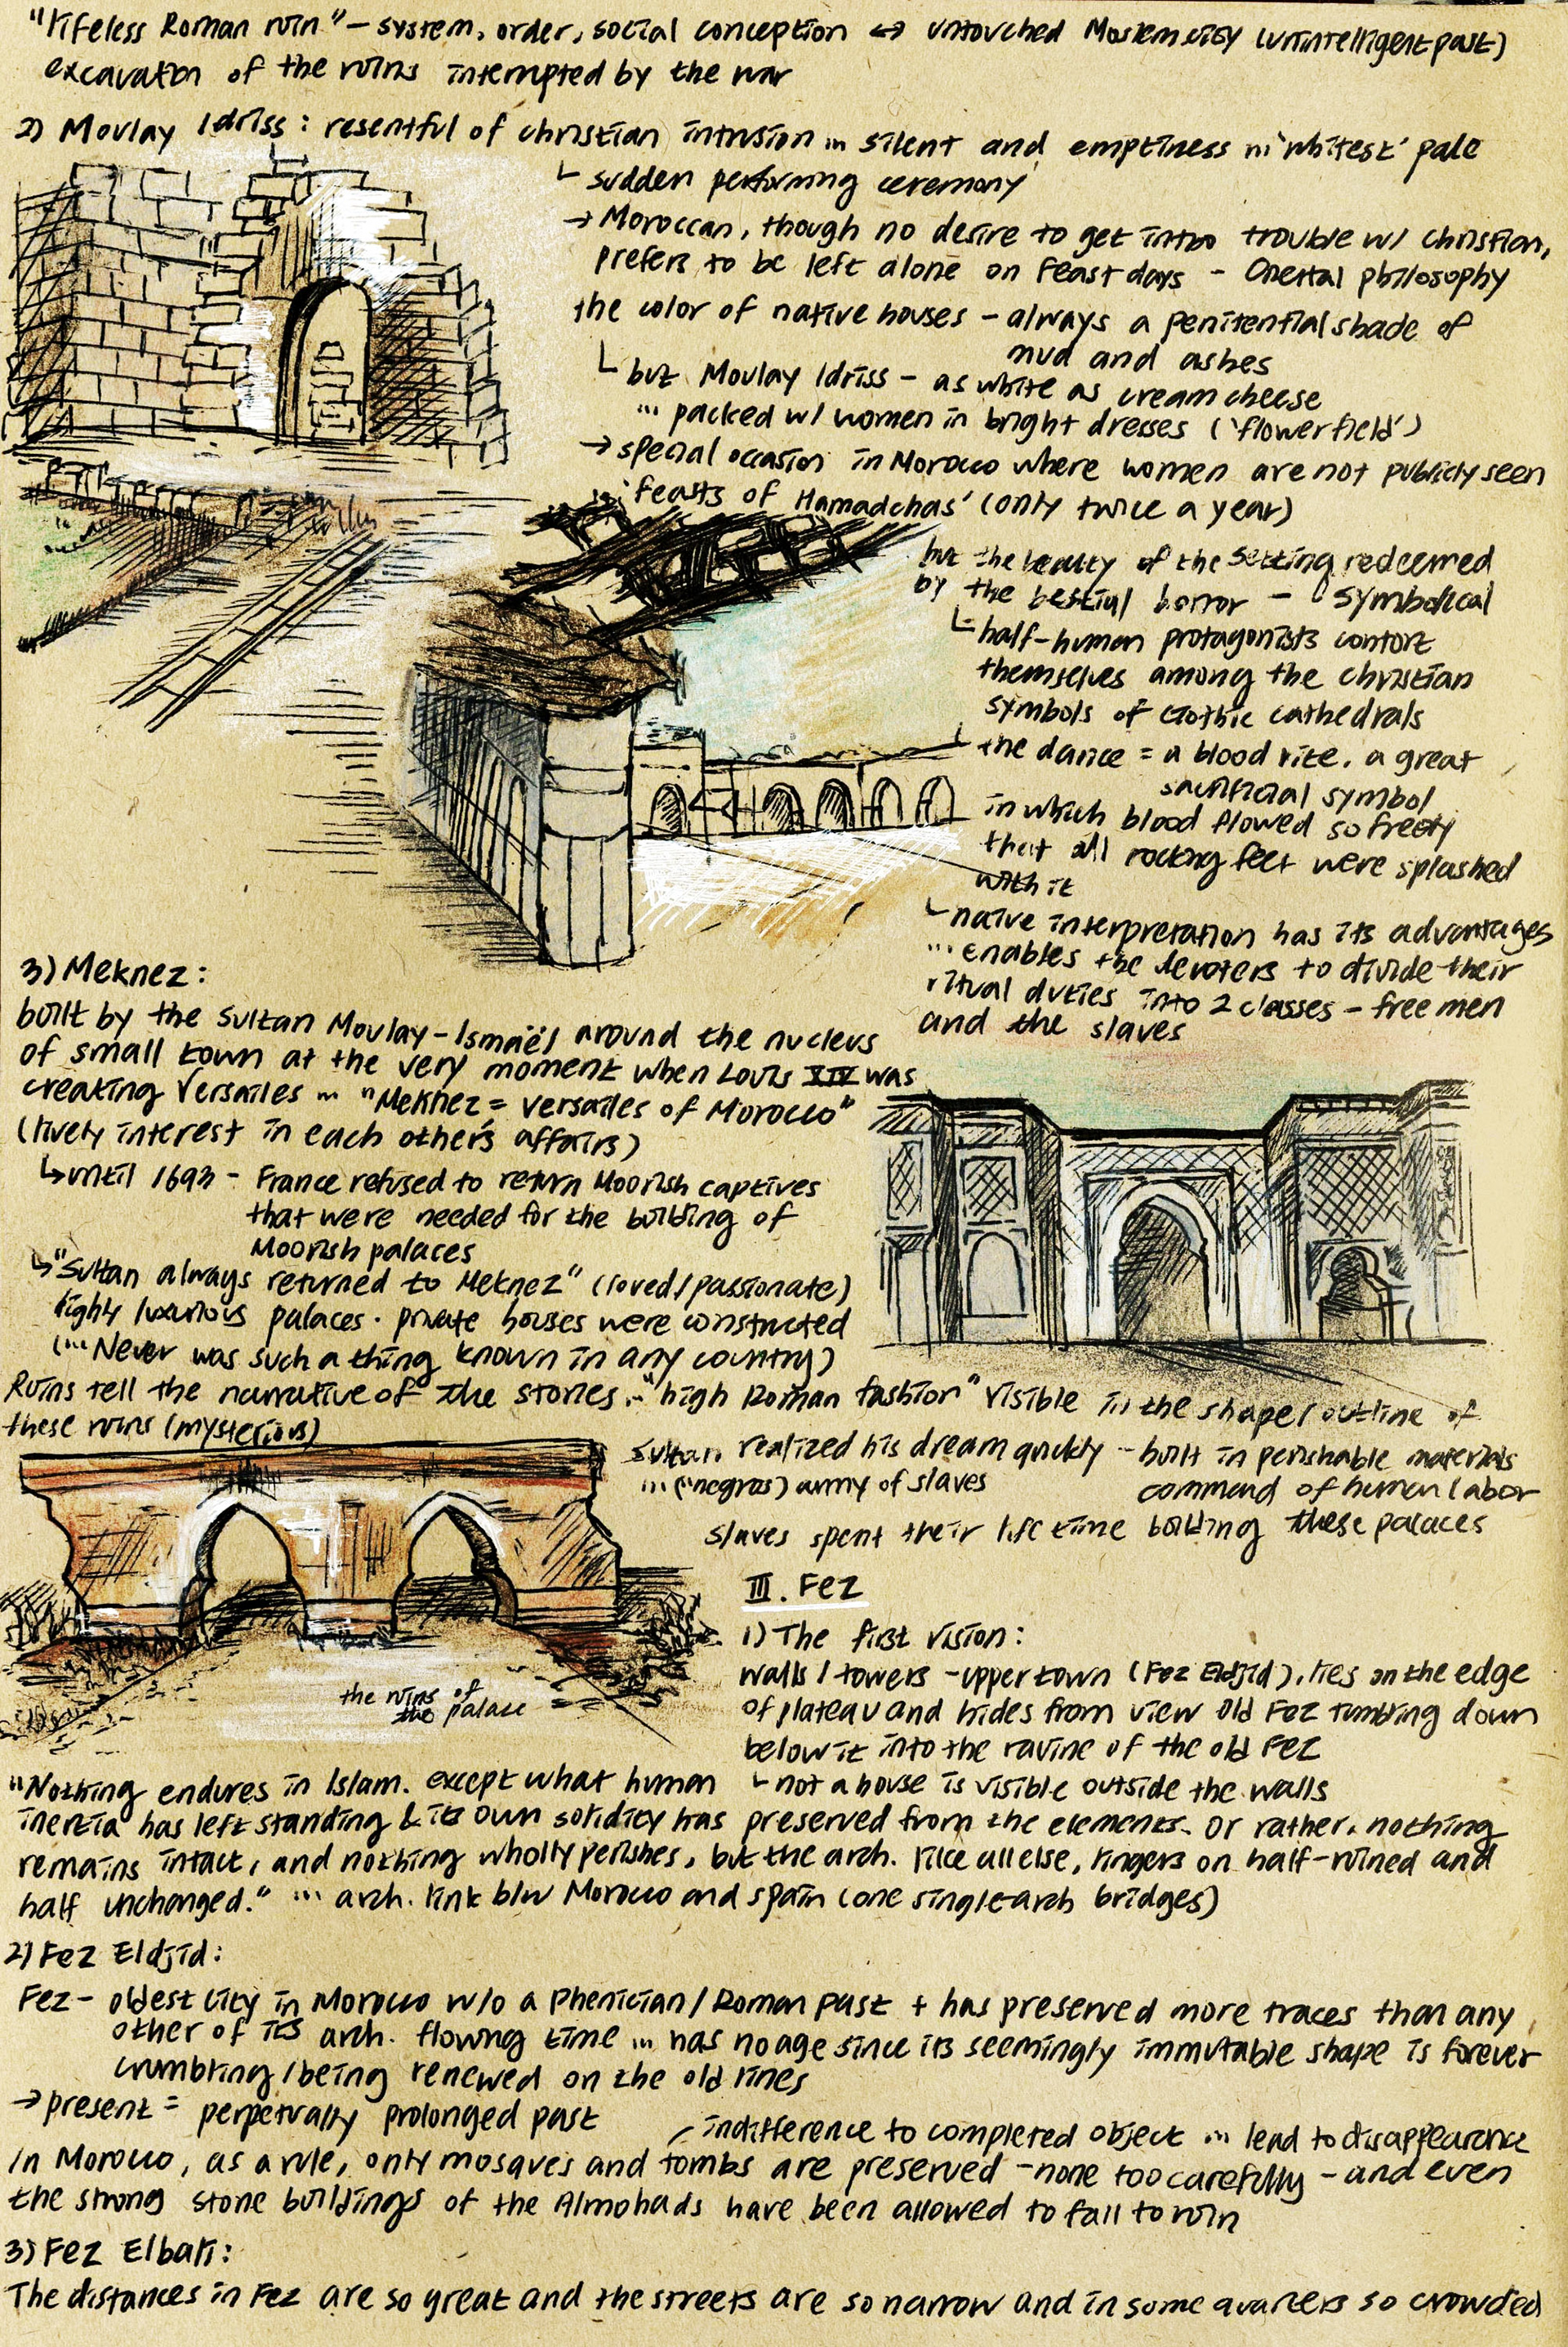 "lifeless Roman ruin" – system, order, social conception ↔ untouched Moslem city (unintelligent past)
excavation of the ruins interrupted by the war
2) Moulay Idriss: resentful of christian intrusion ... silent and emptiness ... 'whitest' pale
└ sudden performing ceremony
→ Moroccan, though no desire to get into trouble w/ christian,
prefers to be left alone on feast days – Oriental philosophy
the color of native houses – always a penitential shade of
mud and ashes
└ but Moulay Idriss – as white as cream cheese
... packed w/ women in bright dresses ('flowerfield')
→ special occasion in Morocco where women are not publicly seen
'feasts of Hamadchas' (only twice a year)
but the beauty of the setting redeemed
by the bestial horror – symbolical
└ half-human protagonists contort
themselves among the christian
symbols of Gothic cathedrals
└ the dance = a blood rite, a great
sacrificial symbol
in which blood flowed so freely
that all rocking feet were splashed
with it
└ naive interpretation has its advantages
... enables the devoters to divide their
ritual duties into 2 classes – free men
and the slaves
3) Meknez:
built by the Sultan Moulay-Ismaël around the nucleus
of small town at the very moment when Louis XIV was
creating Versailles ... "Meknez = Versailles of Morocco"
(lively interest in each other's affairs)
↳ until 1693 – France refused to return Moorish captives
that were needed for the building of
Moorish palaces
↳ "Sultan always returned to Meknez" (loved/passionate)
highly luxurious palaces. private houses were constructed
(... Never was such a thing known in any country)
Ruins tell the narrative of the stories ... "high Roman fashion" visible in the shape/outline of
these ruins (mysterious)
Sultan realized his dream quickly – built in perishable materials
... ("negros) army of slaves command of human labor
slaves spent their life time building these palaces
the ruins of
the palace
III. Fez
1) The first vision:
walls/towers – upper town (Fez Eldjid), lies on the edge
of plateau and hides from view old Fez tumbling down
below it into the ravine of the old Fez
└ not a house is visible outside the walls
"Nothing endures in Islam. except what human
inertia has left standing & its own solidity has preserved from the elements. Or rather, nothing
remains intact, and nothing wholly perishes, but the arch. like all else, lingers on half-ruined and
half unchanged." ... arch. link b/w Morocco and spain (one single-arch bridges)
2) Fez Eldjid:
Fez – oldest city in Morocco w/o a Phenician/Roman past + has preserved more traces than any
other of its arch. flowing time ... has no age since its seemingly immutable shape is forever
crumbling/being renewed on the old lines
→ present = perpetually prolonged past
indifference to completed object ... lead to disappearance
In Morocco, as a rule, only mosques and tombs are preserved – none too carefully – and even
the strong stone buildings of the Almohads have been allowed to fall to ruin
3) Fez Elbali:
The distances in Fez are so great and the streets are so narrow and in some quarters so crowded